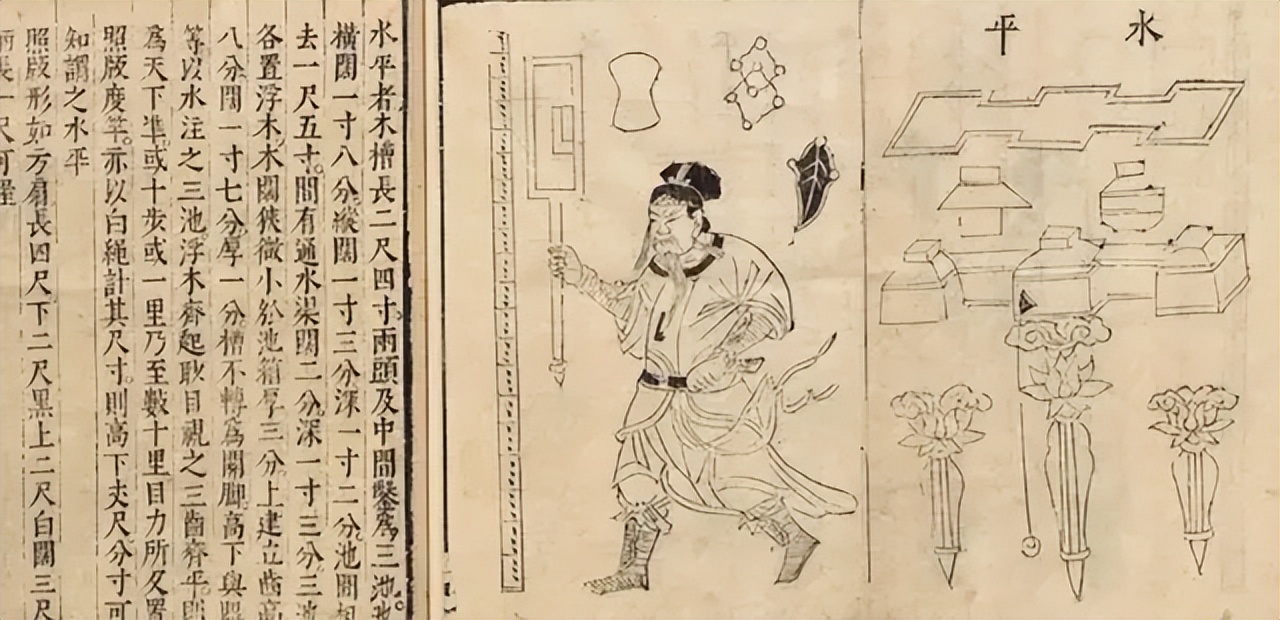 水平
水平者木槽長二尺四寸。兩頭及中間鑿為三池。池
橫闊一寸八分。縱闊一寸三分。深一寸二分。池間相
去一尺五寸。間有通水渠闊二分。深一寸三分。三池
各置浮木。木闊狹微小於池箱厚三分。上建立齒高
八分闊一寸七分。厚一分。槽不轉為關腳。高下與眼
等以水注之三池浮木齊起耿目視之三齒齊平。則
為天下準。或十步或一里乃至數十里目力所及置
照版度竿。亦以白繩計其尺寸。則高下丈尺分寸可
知謂之水平
照版形如方扇長四尺下二尺黑上二尺白闊三尺
柄長一尺可握